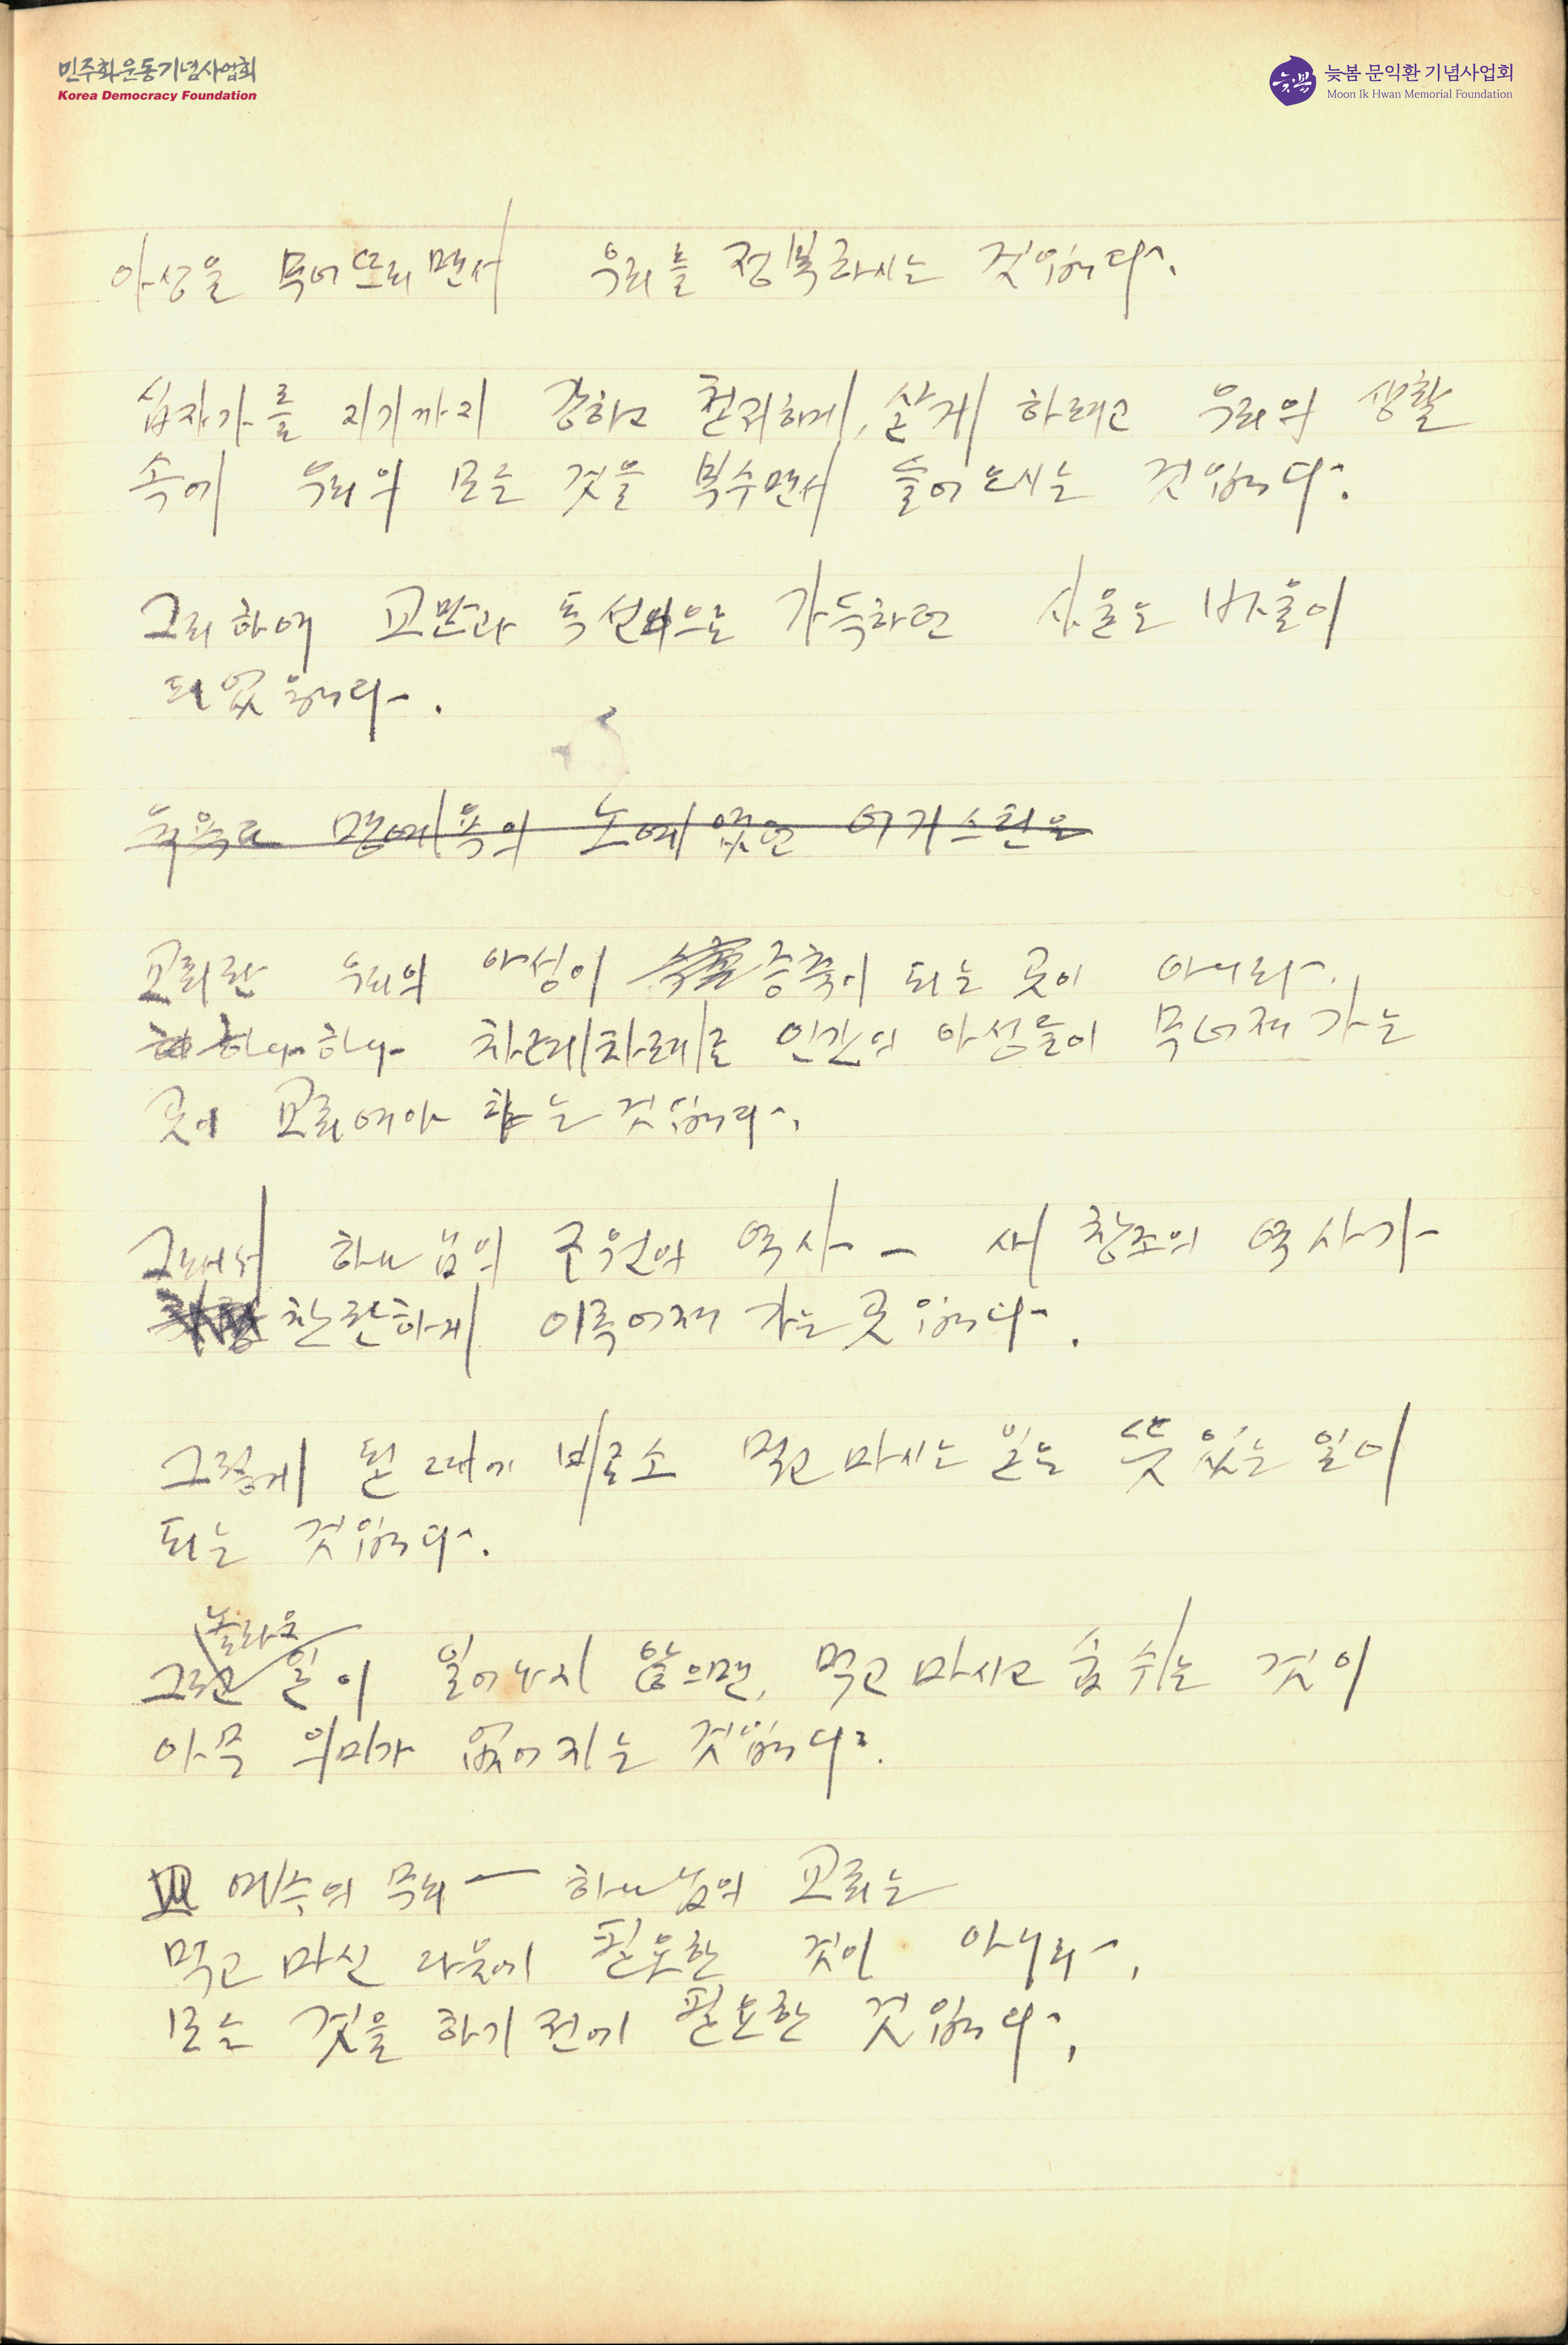 민주화운동기념사업회
Korea Democracy Foundation
늦봄 문익환 기념사업회
Moon Ik Hwan Memorial Foundation
아성을 묵어뜨리면서 우리를 정복하시는 것입니다.
십자가를 지기까지 강하고 철저하게, 살게 하려고 우리의 생활
속에 우리의 모든 것을 부수면서 들어오시는 것입니다.
그리하여 교만과 독선으로 가득하던 사울은 바울이
되었습니다.
육욕과 명예욕의 노예였던 어거스틴은
교회란 우리의 아성이 증축이 되는 곳이 아니라,
하나하나 차례차례로 인간의 아성들이 무너져 가는
곳이 교회여야 하는 것입니다.
그래서 하나님의 구원의 역사 - 새 창조의 역사가
찬란하게 이루어져 가는 곳입니다.
그렇게 될 때에 비로소 먹고 마시는 일은 뜻있는 일이
되는 것입니다.
놀라운
그런 일이 일어나지 않으면, 먹고 마시고 숨쉬는 것이
아무 의미가 없어지는 것입니다.
예수의 무리 — 하나님의 교회는
먹고 마신 다음에 필요한 것이 아니라,
모든 것을 하기 전에 필요한 것입니다.